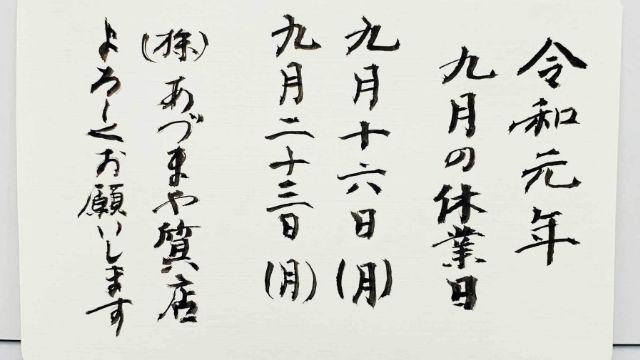 令和元年
九月の休業日
九月十六日(月)
九月二十三日(月)
(株)あづまや質店
よろしくお願いします